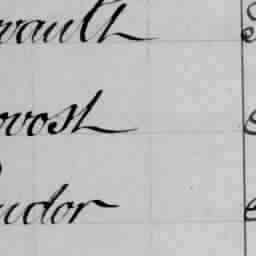 vault
ovost
udor